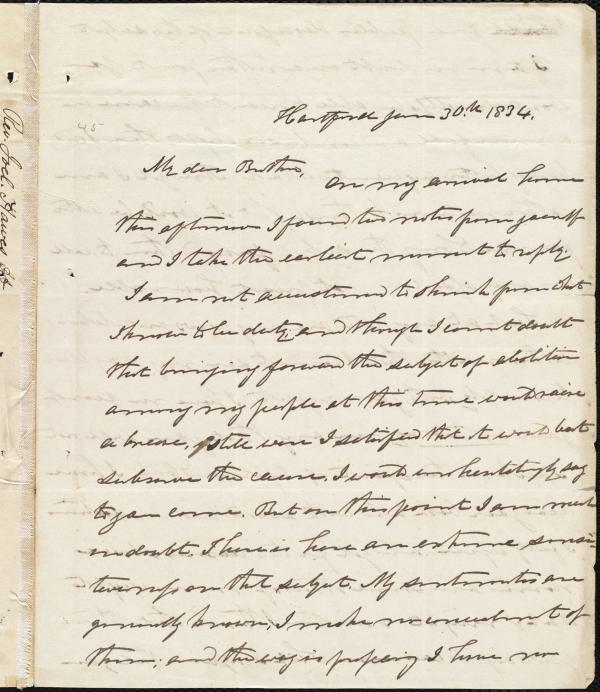 Hartford Jan 30.th 1834.
45
My dear Brother,
On my arrival home
this afternoon I found two notes from yourself
and I take the earliest moment to reply.
I am not accustomed to shrink from what
I know to be duty, and though I cannot doubt
that bringing forward the subject of abolition
among my people at this time would raise
a breeze, still were I satisfied that it would best
subserve the cause, I would unhesitatingly say
to you come. But on this point I am much
in doubt. There is here an extreme sensi-
tiveness on that subject. My sentiments are
generally known; I make no concealment of
them; and the way is preparing I have no
Rev. Joel. Hawes